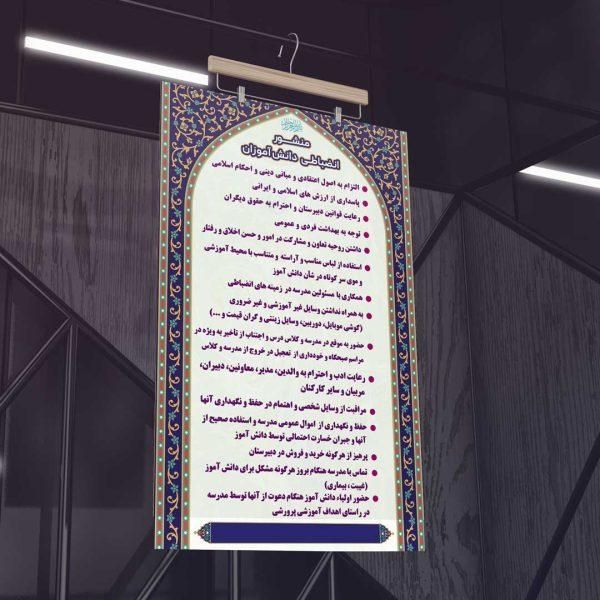 منشور
انضباطی دانش آموزان
التزام به اصول اعتقادی و مبانی دینی و احکام اسلامی
پاسداری از ارزش های اسلامی و ایرانی
رعایت قوانین دبیرستان و احترام به حقوق دیگران
توجه به بهداشت فردی و عمومی
داشتن روحیه تعاون و مشارکت در امور و حسن اخلاق و رفتار
استفاده از لباس مناسب و آراسته و متناسب با محیط آموزشی
و موی سر کوتاه در شأن دانش آموز
همکاری با مسئولین مدرسه در زمینه های انضباطی
به همراه نداشتن وسایل غیر آموزشی و غیر ضروری
(گوشی موبایل، دوربین، وسایل زینتی و گران قیمت و ...)
حضور به موقع در مدرسه و کلاس درس و اجتناب از تأخیر به ویژه در
مراسم صبحگاه و خودداری از تعجیل در خروج از مدرسه و کلاس
رعایت ادب و احترام به والدین، مدیر، معاونین، دبیران،
مربیان و سایر کارکنان
مراقبت از وسایل شخصی و اهتمام در حفظ و نگهداری آنها
حفظ و نگهداری از اموال عمومی مدرسه و استفاده صحیح از
آنها و جبران خسارت احتمالی توسط دانش آموز
پرهیز از هرگونه خرید و فروش در دبیرستان
تماس با مدرسه هنگام بروز هرگونه مشکل برای دانش آموز
(غیبت، بیماری)
حضور اولیاء دانش آموز هنگام دعوت از آنها توسط مدرسه
در راستای اهداف آموزشی پرورشی